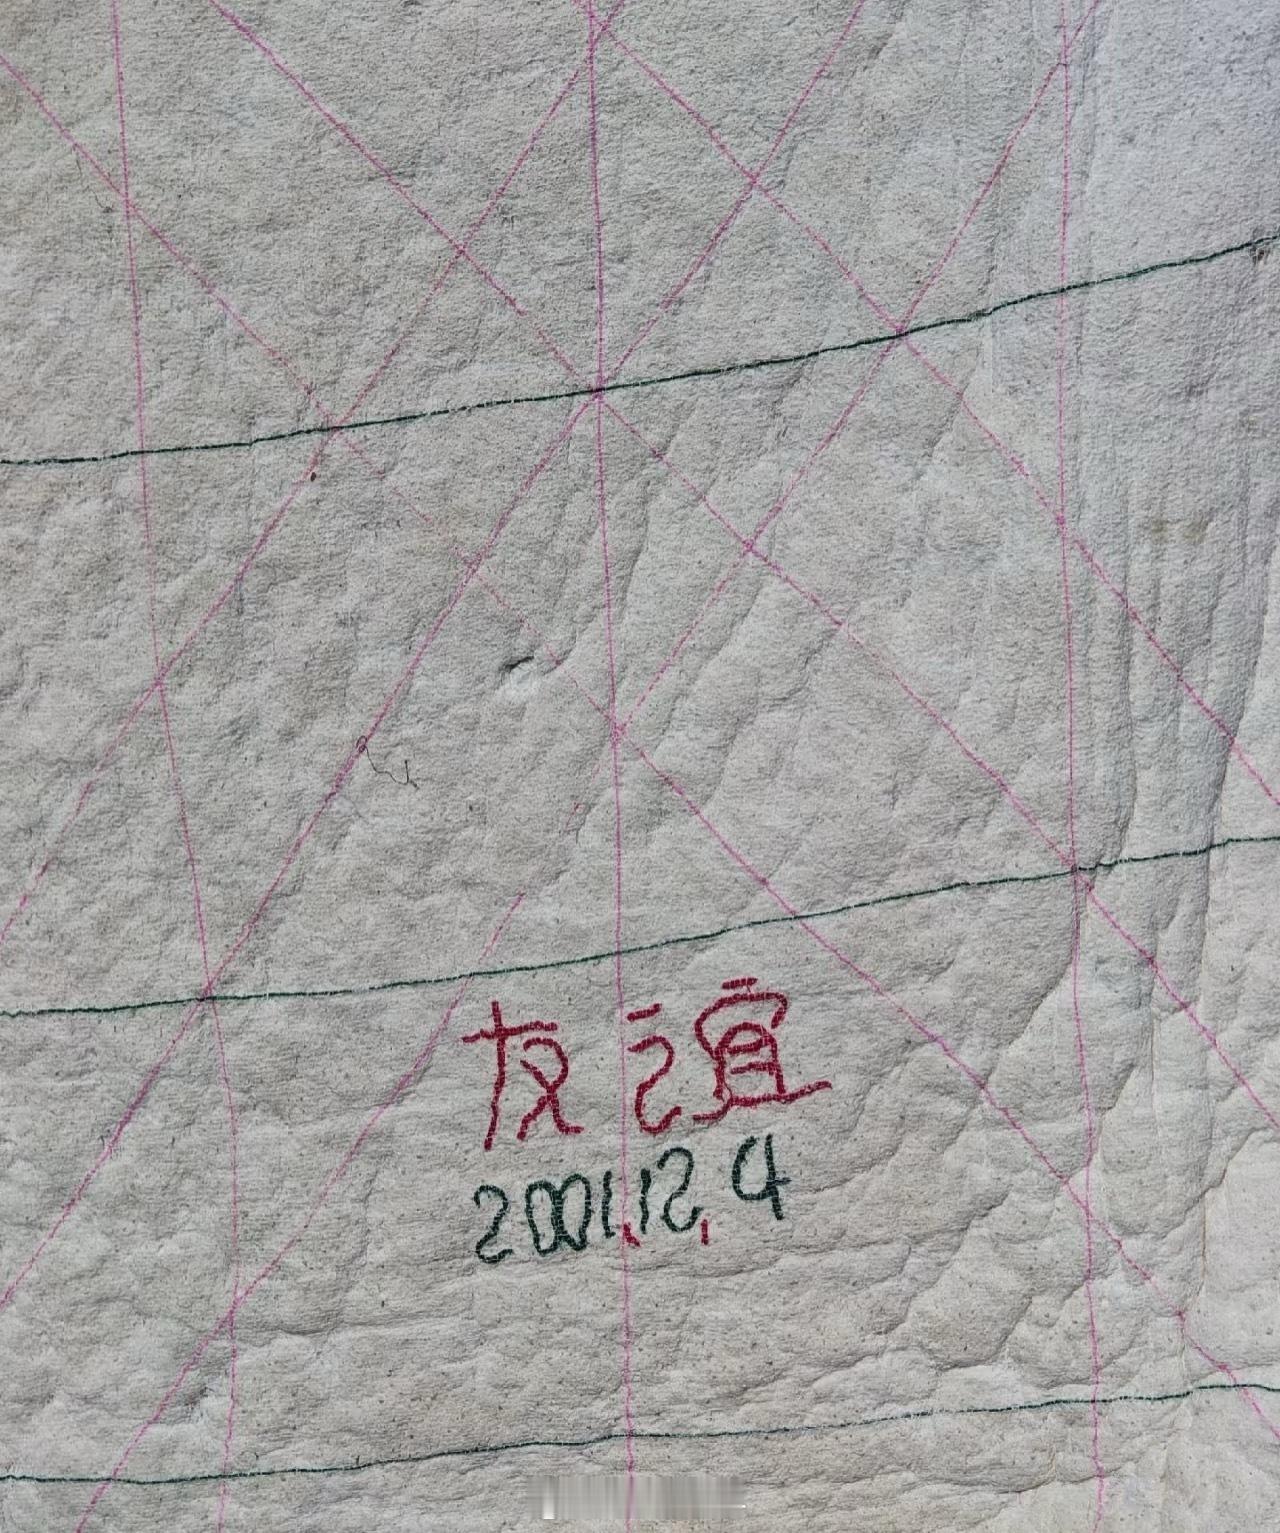 友谊
2001.12.4